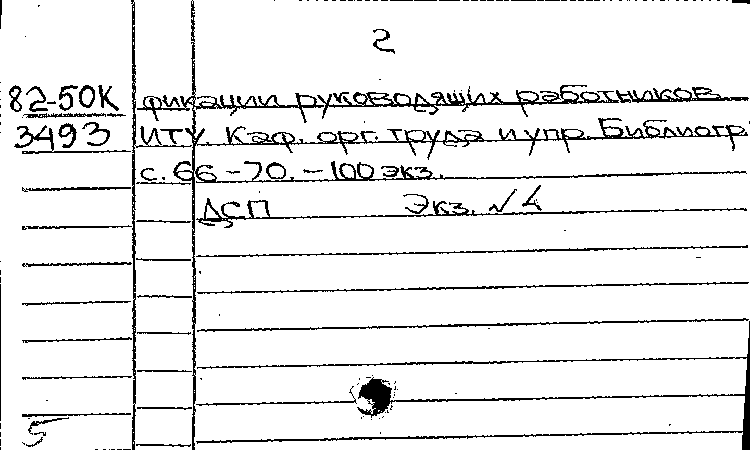 2
82-50К фикации руководящих работников
3493 ИТУ. Каф. орг. труда и упр. Библиогр.
с. 66-70. - 100 экз.
ДСП Экз. √ 4
5